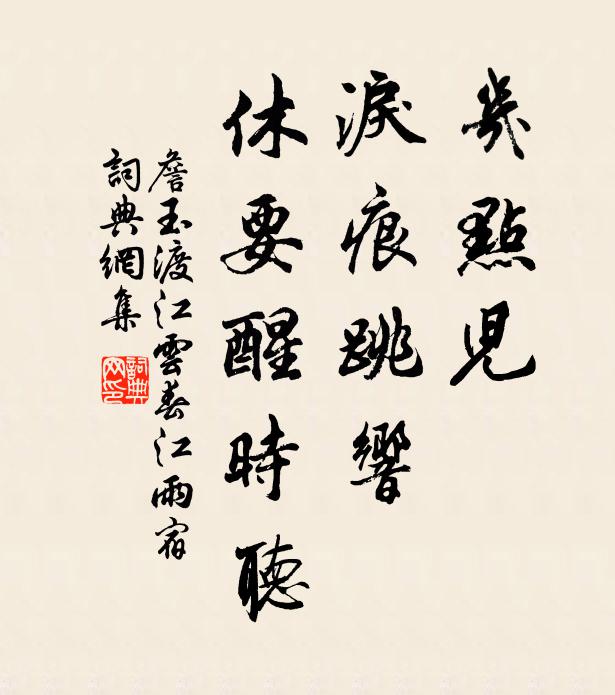 幾點兒
淚痕跳響
休要醒時聽
詹玉渡江雲春江雨宿
詞典網集
詞典
网印